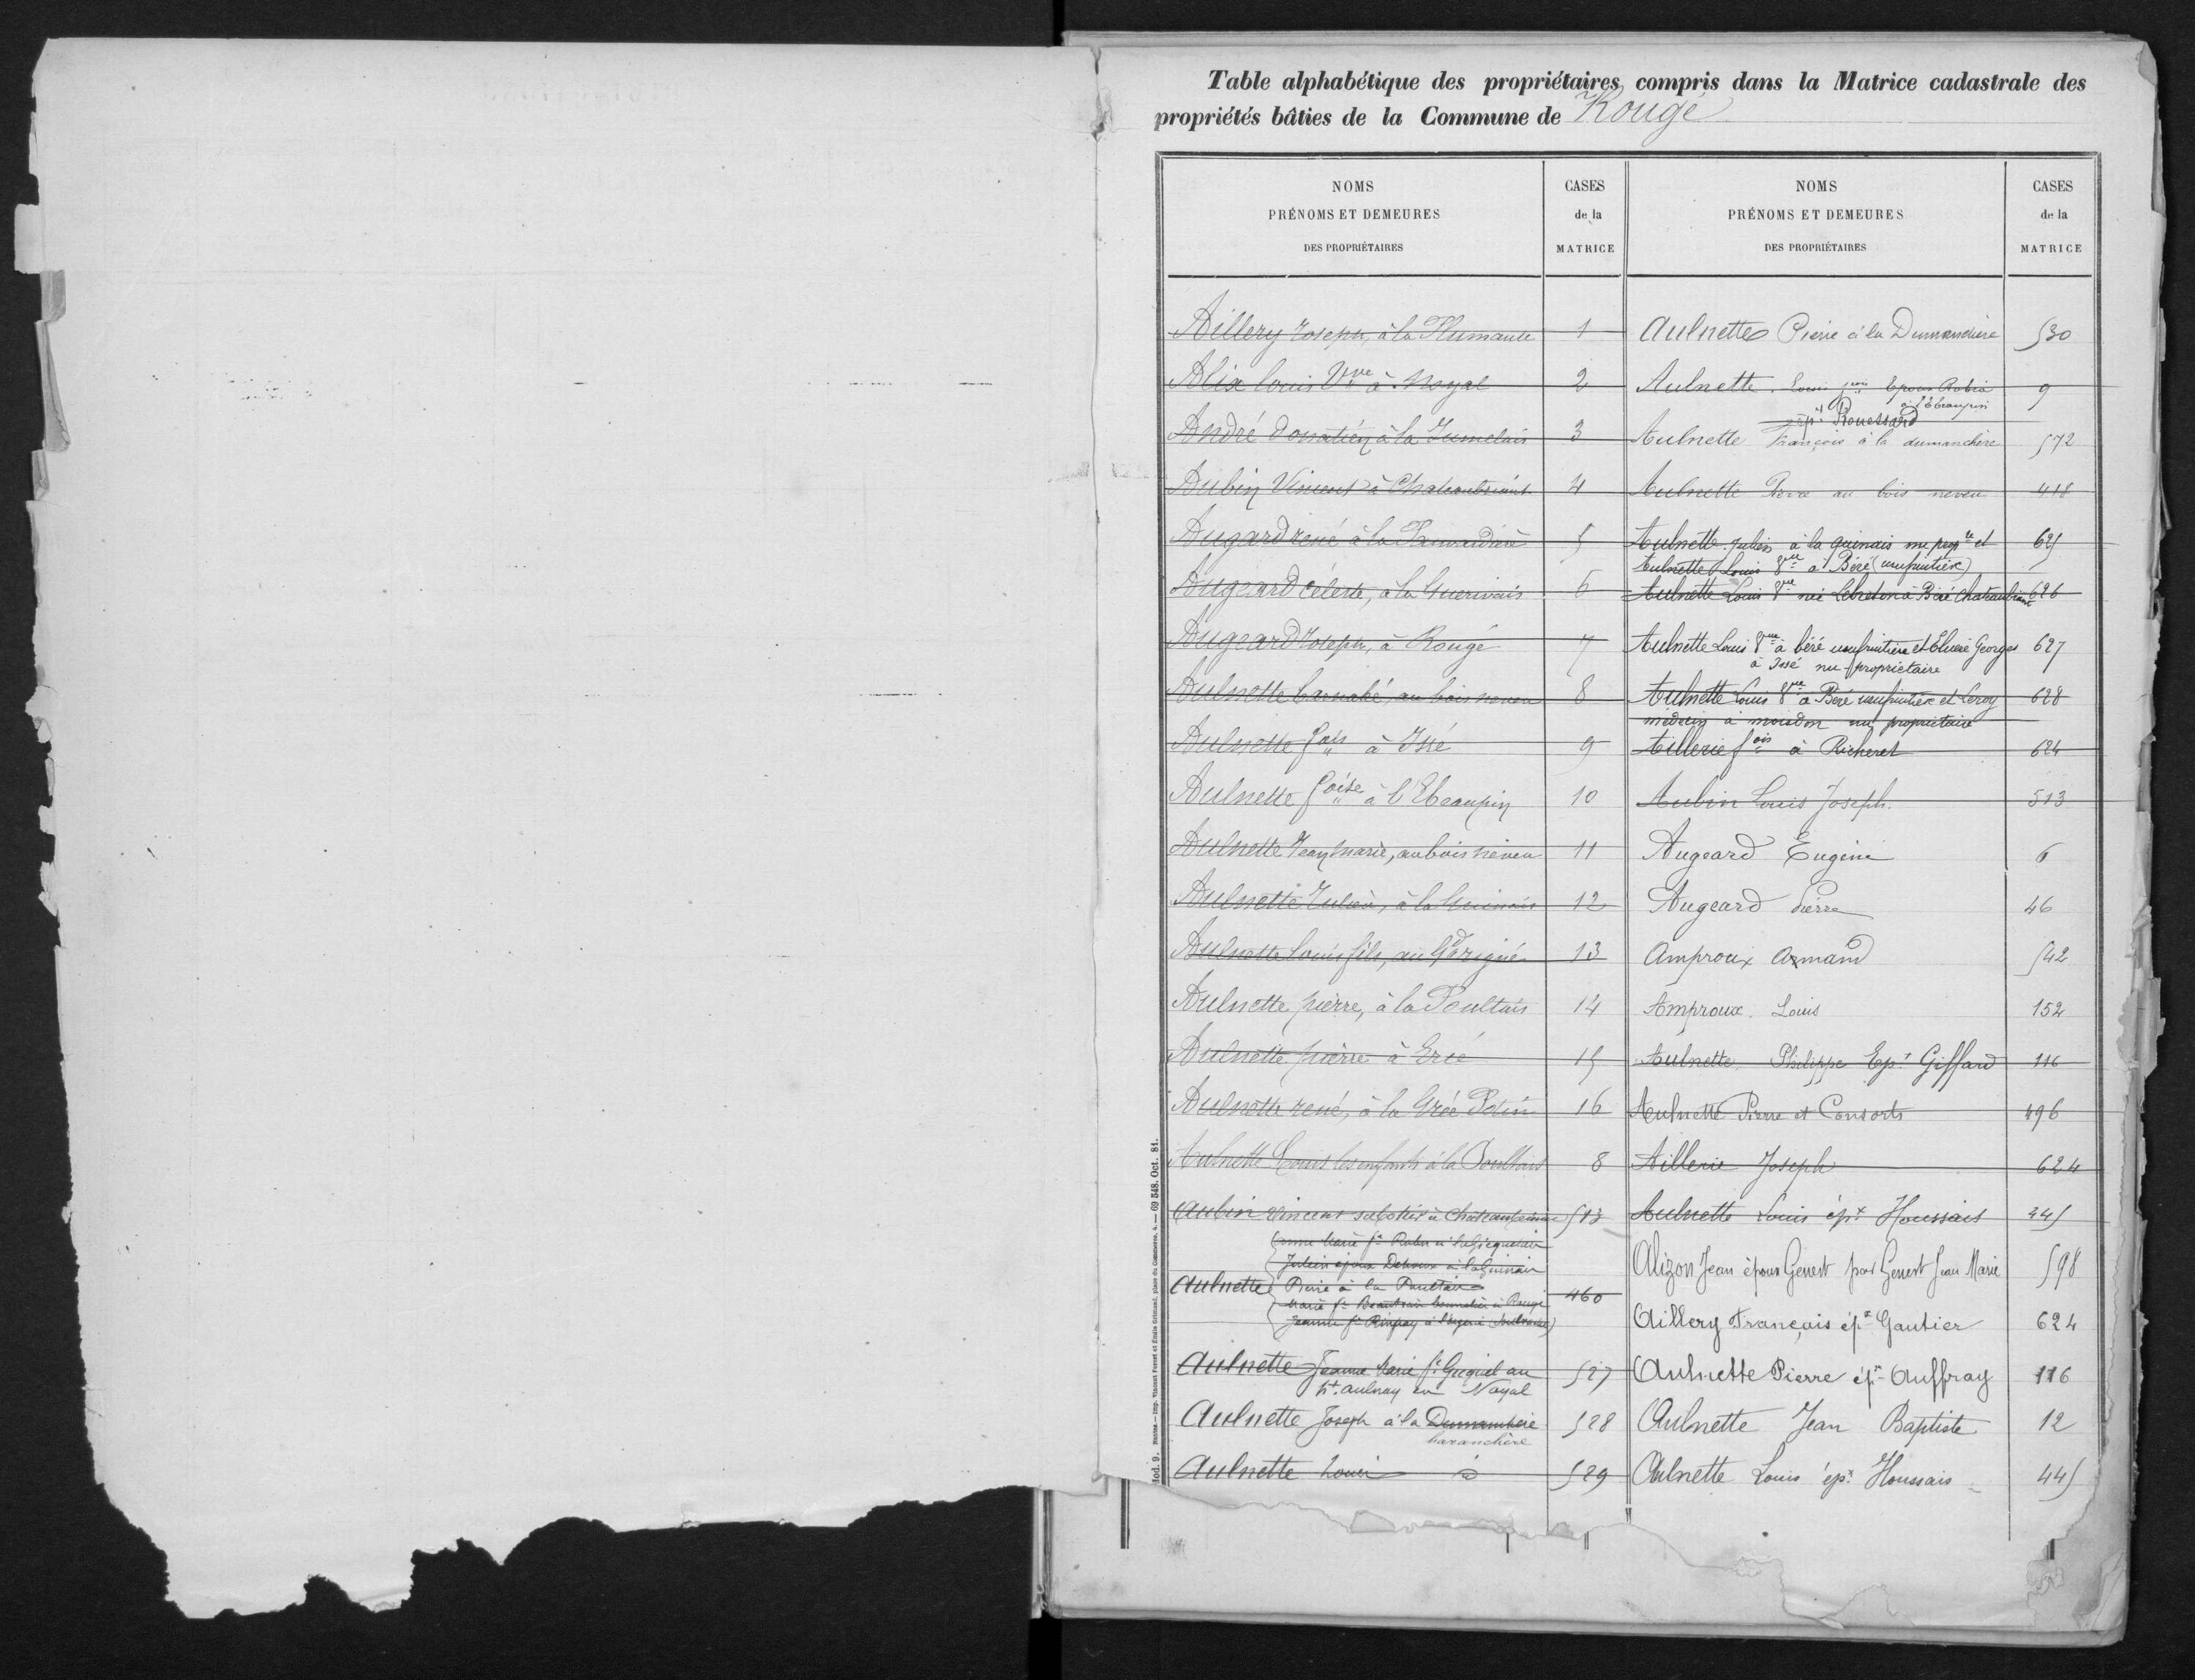 Table alphabétique des propriétaires compris dans la Matrice cadastrale des
propriétés bâties de la Commune de Rougé
NOMS
PRÉNOMS ET DEMEURES
DES PROPRIÉTAIRES
CASES
de la
MATRICE
Aillery Joseph, à la Plumante 1
Alix Louis Vve à Noyal 2
André Donatien à la Jumelais 3
Aubin Vincent à Chateaubriant 4
Augeard rené à la 5
Augeard Céleste, à la 6
Augeard Joseph, à Rougé 7
Aulnette Barnabé, au bois neveu 8
Aulnette fois à Issé 9
Aulnette foise à l'Ebeaupin 10
Aulnette Jean Marie, au bois neveu 11
Aulnette Julien, à la Guinais 12
Aulnette Louis fils, au Périgné 13
Aulnette pierre, à la Poultais 14
Aulnette pierre à Ercé 15
Aulnette rené, à la Grée Potin 16
Aulnette Louis les enfants à la Poultais 8
Aubin Vincent à Chateaubriant 513
Julien époux à la Guinais
Aulnette Pierre à la Poultais 460
Marie à Rougé
Jeanne
Aulnette Jeanne Marie fe au 527
pt aulnay en Noyal
Aulnette Joseph à la Dumanchère 528
haranchère
Aulnette Louis d 529
NOMS
PRÉNOMS ET DEMEURES
DES PROPRIÉTAIRES
CASES
de la
MATRICE
Aulnette Pierre à la Dumanchère 530
Aulnette Louis Epoux Robia 9
à l'Ebeaupin
ept Rouessard
Aulnette François à la dumanchère 572
Aulnette Pierre au bois neveu 418
Aulnette Julien à la guinais nu propre et 625
Aulnette Louis Vve à Béré (usufruitière)
Aulnette Louis Vve née Lebreton à Béré Chateaubriant 626
Aulnette Louis Vve à béré usufruitière et Georges 627
à Issé nu-propriétaire
Aulnette Louis Vve à Béré usufruitière et Leroy 628
médecin à moisdon nu propriétaire
Aillerie fois à Richeret 624
Aubin Louis Joseph. 513
Augeard Eugène 6
Augeard Pierre 46
Amproux Armand 542
Amproux Louis 152
Aulnette Philippe Ept Giffard 116
Aulnette Pierre et Consorts 496
Aillerie Joseph 624
Aulnette Louis épx Houssais 445
Alizon Jean époux Genest par Genest Jean Marie 598
Aillery François épx Gautier 624
Aulnette Pierre épx Auffray 116
Aulnette Jean Baptiste 12
Aulnette Louis épx Houssais 445
Mod. 9. Nantes. — Imp. Vincent Forest et Émile Grimaud, place du Commerce, 4. — 69 548. Oct. 81.